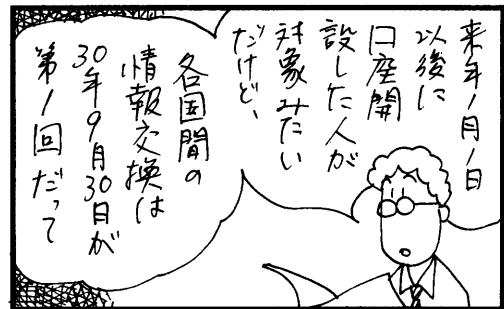 来年1月1日
以後に
口座開
設した人が
対象みたい
だけど、
各国間の
情報交換は
30年9月30日が
第1回だって